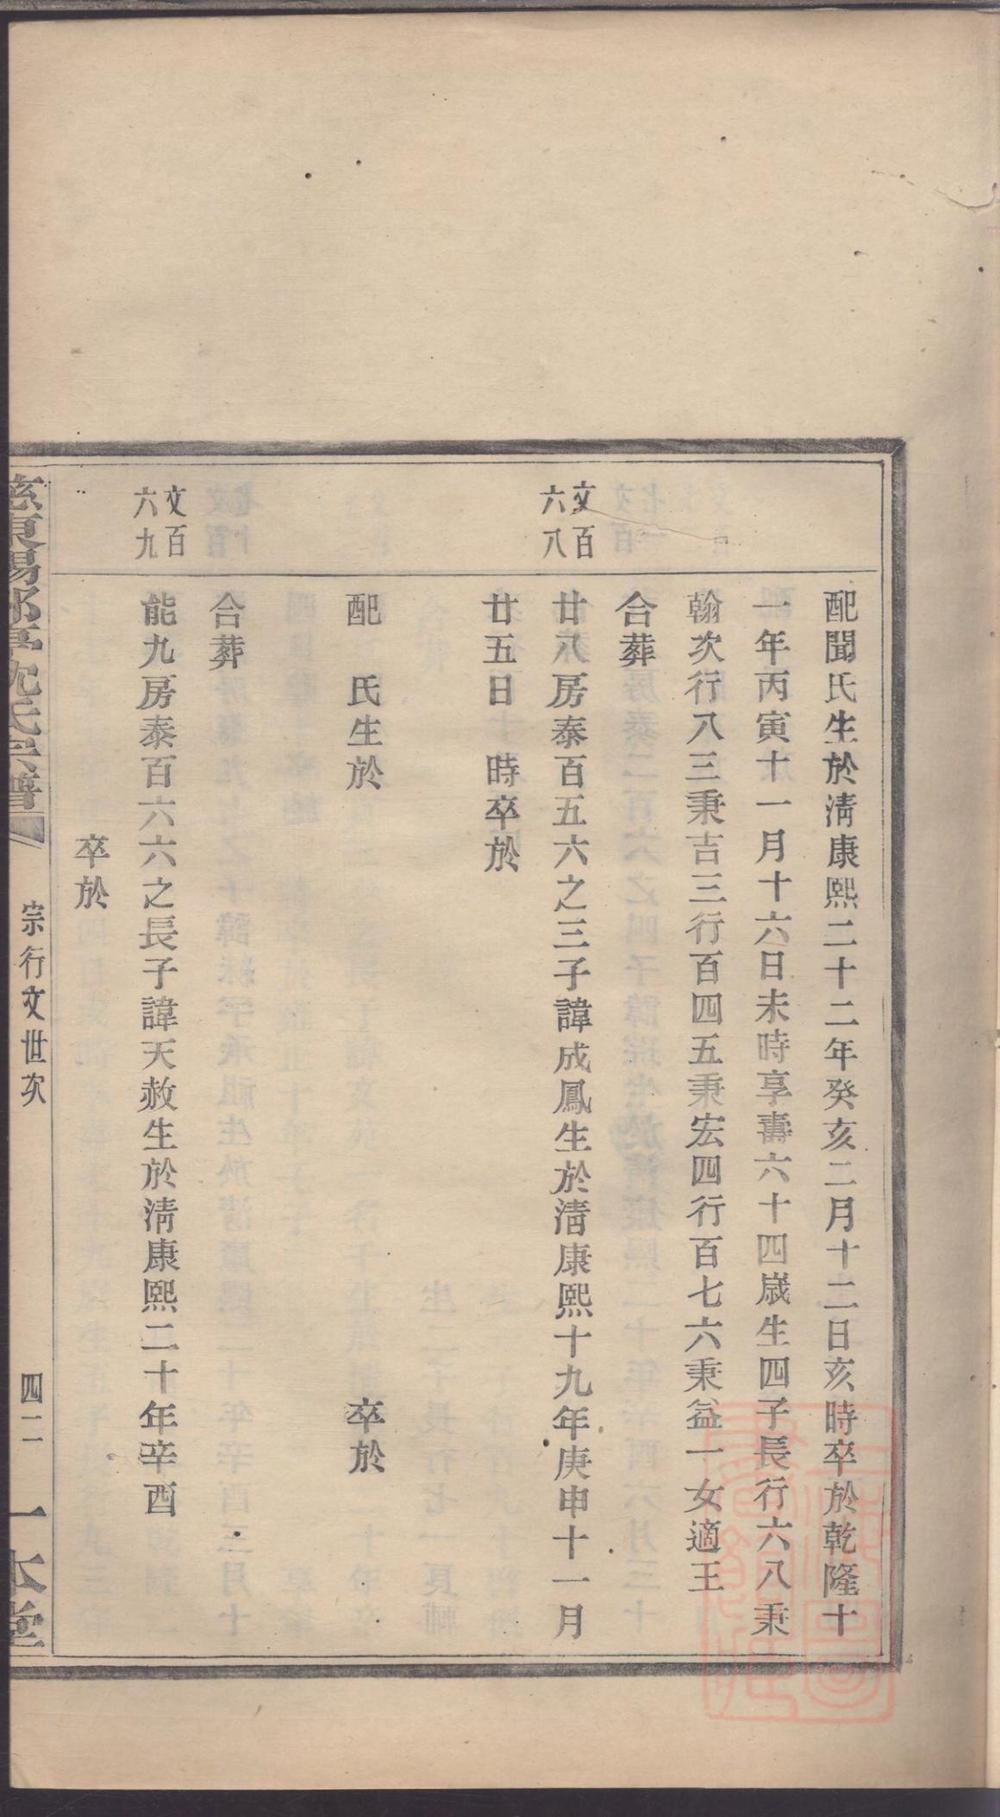 配聞氏生於淸康熙二十二年癸亥二月十二日亥時卒於乾隆十
一年丙寅十一月十六日未時享壽六十四歲生四子長行六八秉
翰次行八三秉吉三行百四五秉宏四行百七六秉益一女適王
合葬
文百六八
廿八房泰百五六之三子諱成鳳生於淸康熙十九年庚申十一月
廿五日 時卒於
配 氏生於 卒於
合葬
文百六九
能九房泰百六六之長子諱天赦生於淸康熙二十年辛酉
卒於
慈東陽郭亭沈氏宗譜 宗行文世次 四二 一本堂